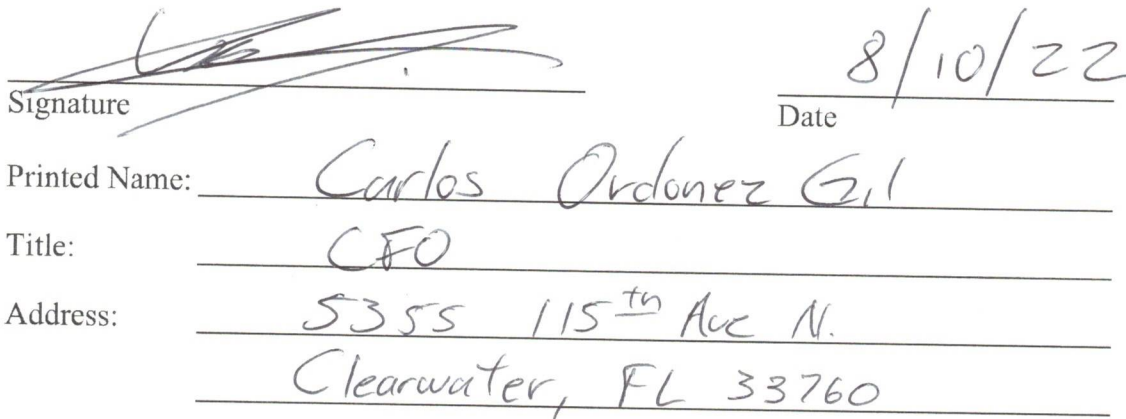 8/10/22
Signature Date
Printed Name: Carlos Ordonez Gil
Title: CFO
Address: 5355 115th Ave N.
Clearwater, FL 33760